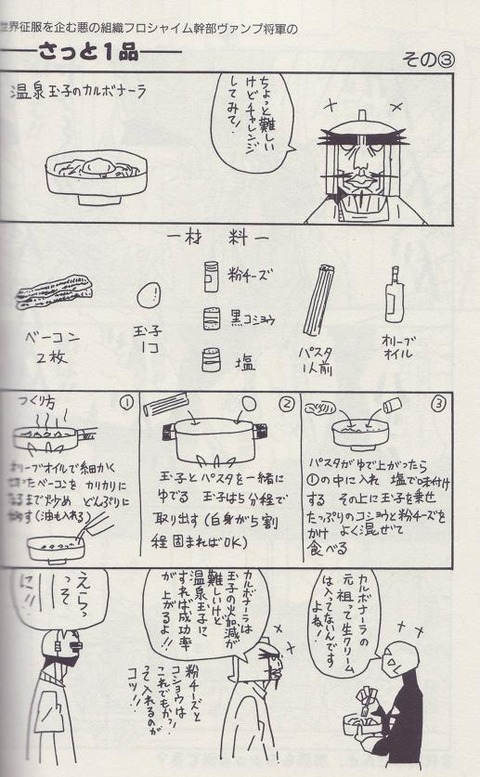 世界征服を企む悪の組織フロシャイム幹部ヴァンプ将軍の
さっと1品
その③
温泉玉子のカルボナーラ
ちょっと難しい
けどチャレンジ
してみて!
材料
ベーコン
2枚
玉子
1コ
粉チーズ
黒コショウ
塩
パスタ
1人前
オリーブ
オイル
つくり方
①
オリーブオイルで細かく
切ったベーコンを カリカリに
なるまで炒め どんぶりに
移す(油も入れる)
②
玉子とパスタを一緒に
ゆでる 玉子は5分程で
取り出す(白身が5割
程 固まればOK)
③
パスタがゆで上がったら
①の中に入れ 塩で味付け
する その上に玉子を乗せ
たっぷりのコショウと粉チーズを
かけ よく混ぜて
食べる
カルボナーラの
元祖って生クリーム
は入ってないんです
よね!
カルボナーラは
玉子の火加減が
難しいけど
温泉玉子に
すれば成功率
が上がるよ!!
粉チーズと
コショウは
これでもかっ!
って入れるのが
コツ!!
えらっ
そ
に!!